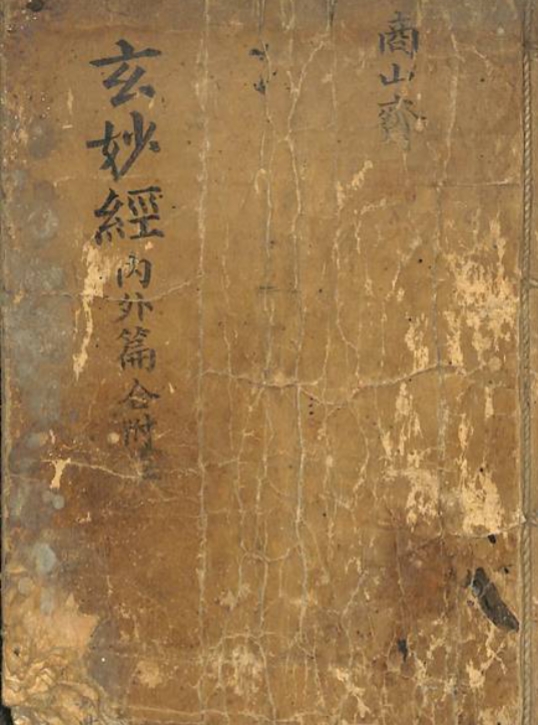 商山齋
玄妙經內外篇合附